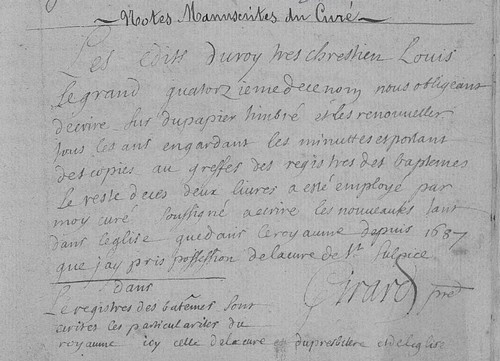 Notes Manuscrites du Curé
Les Edits du roy tres chrestien Louis
Legrand quatorzieme de ce nom nous obligeans
decrire sur du papier timbré et les renouveller
tous les ans en gardant les minuttes et portant
des copies au greffes des registres des baptemes
Le reste de ces deux livres a esté employé par
moy curé soussigné a ecrire les nouveautes tant
dans leglise que dans le royaume depuis 1687
que jay pris possession de la cure de St Sulpice
Girard pre
dans
Le registres des batemes sont
ecrites les particularites du
royaume icy celle de la cure et du presbitere et de leglise